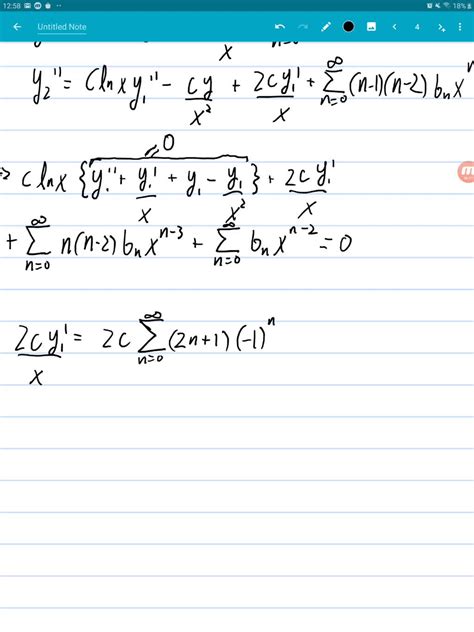 12:58 18%
Untitled Note 4
x n=0
y₂'' = c ln x y₁'' - cy/x² + 2cy₁'/x + ∞Σn=0 (n-1)(n-2) bₙ xⁿ
=0
=> c ln x {y₁'' + y₁'/x + y₁ - y₁/x²} + 2cy₁'/x
+ ∞Σn=0 n(n-2) bₙ xⁿ⁻³ + ∞Σn=0 bₙ xⁿ⁻² = 0
2cy₁'/x = 2c ∞Σn=0 (2n+1)(-1)ⁿ